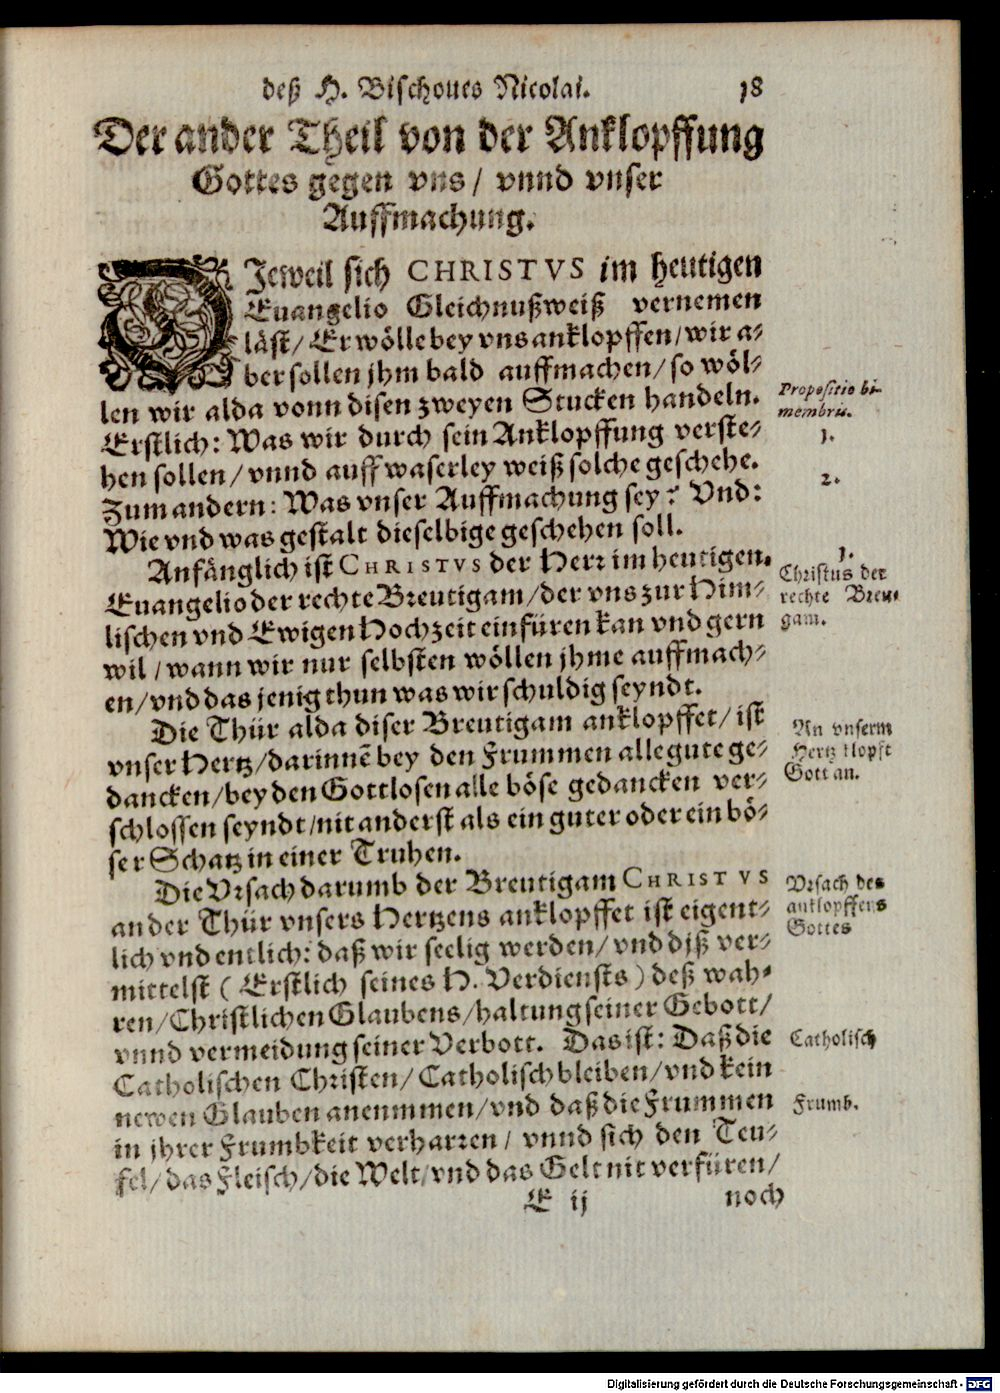 deß H. Bischoues Nicolai. 18
Der ander Theil von der Anklopffung
Gottes gegen vns / vnnd vnser
Auffmachung.
DJeweil sich CHRISTVS im heutigen
Euangelio Gleichnußweiß vernemen
läst / Er wölle bey vns anklopffen / wir a-
ber sollen jhm bald auffmachen / so wöl-
len wir alda vonn disen zweyen Stucken handeln.
Propositio bi-
membris.
Erstlich: Was wir durch sein Anklopffung verste-
1.
hen sollen / vnnd auff waserley weiß solche geschehe.
2.
Zum andern: Was vnser Auffmachung sey? Vnd:
Wie vnd was gestalt dieselbige geschehen soll.
Anfänglich ist CHRISTVS der Herr im heutigen
1.
Christus der
rechte Breu-
gam.
Euangelio der rechte Breutigam / der vns zur Him-
lischen vnd Ewigen Hochzeit einfüren kan vnd gern
wil / wann wir nur selbsten wöllen jhme auffmach-
en / vnd das jenig thun was wir schuldig seyndt.
Die Thür alda diser Breutigam anklopffet / ist
An vnserm
Hertz klopft
Gott an.
vnser Hertz / darinnẽ bey den Frummen alle gute ge-
dancken / bey den Gottlosen alle böse gedancken ver-
schlossen seyndt / nit anderst als ein guter oder ein bö-
ser Schatz in einer Truhen.
Die Vrsach darumb der Breutigam CHRISTVS
Vrsach des
anklopffens
Gottes
an der Thür vnsers Hertzens anklopffet ist eigent-
lich vnd entlich: daß wir seelig werden / vnd djß ver-
mittelst ( Erstlich seines H. Verdiensts ) deß wah-
ren / Christlichen Glaubens / haltung seiner Gebott /
vnnd vermeidung seiner Verbott. Das ist: Daß die
Catholisch
Catholischen Christen / Catholisch bleiben / vnd kein
newen Glauben anemmen / vnd daß die Frummen
Frumb.
in jhrer Frumbkeit verharren / vnnd sich den Teu-
fel / das Fleisch / die Welt / vnd das Gelt nit verfüren /
E ij noch
Digitalisierung gefördert durch die Deutsche Forschungsgemeinschaft - DFG